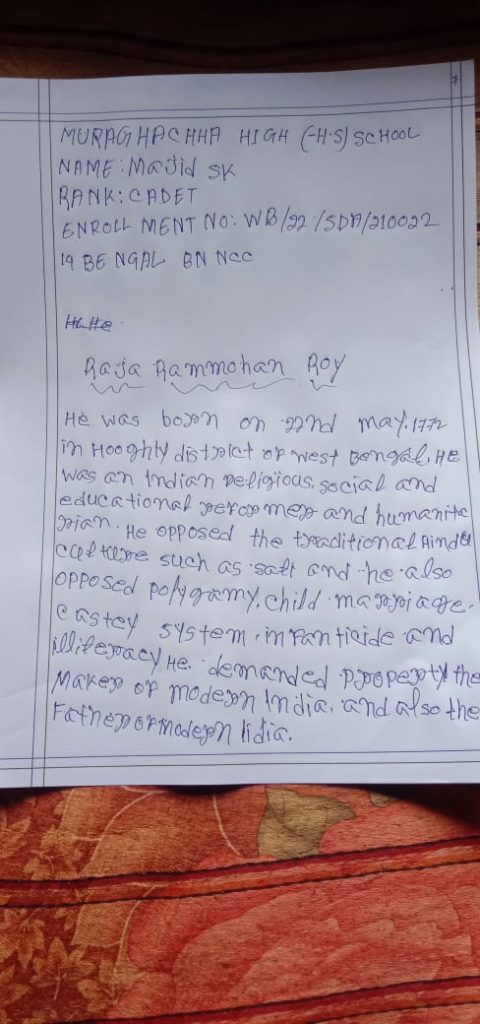 MURAGHACHHA HIGH (H.S) SCHOOL
NAME: Majid SK
RANK: CADET
ENROLL MENT NO: WB/22/SDA/210022
19 BENGAL BN NCC
Raja Rammohan Roy
He was born on 22nd may.1772
in Hooghly district of west Bengal. HE
was an Indian religious, social and
educational reformer and humanita
rian. He opposed the traditional Hindu
culture such as sati and he also
opposed polygamy, child marriage.
Castey system, infanticide and
illiteracy He. demanded property the
Maker of modern India, and also the
Father of modern Iidia.